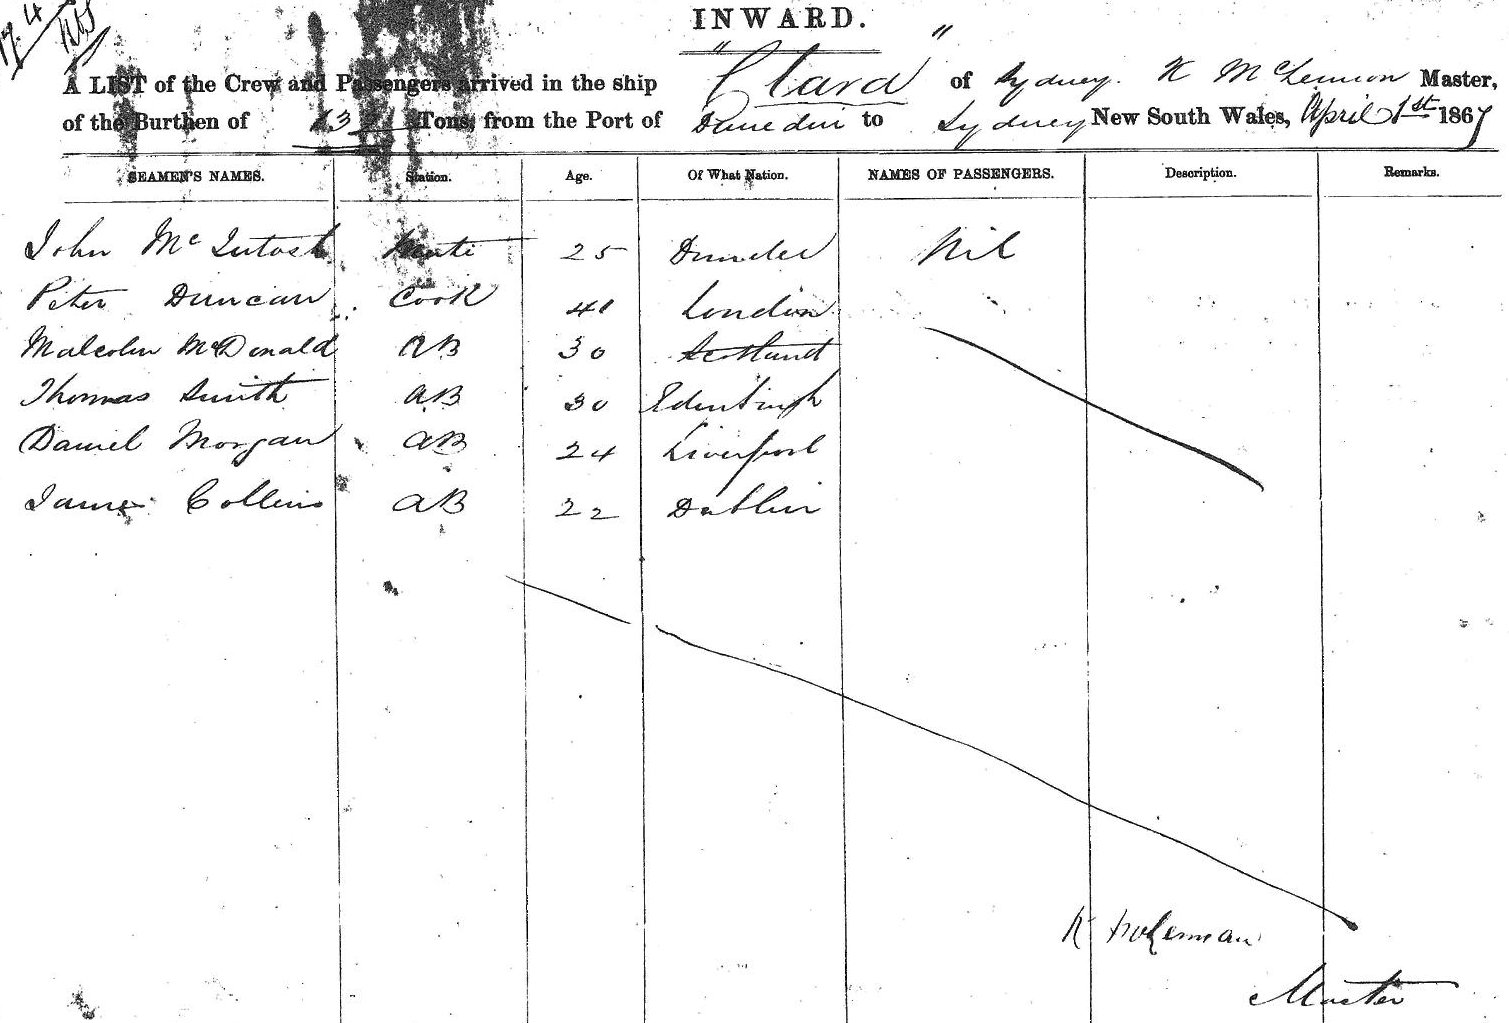 17.4
INWARD.
A LIST of the Crew and Passengers arrived in the ship "Clara" of Sydney. K McLennon Master,
of the Burthen of Tons, from the Port of Dunedin to Sydney New South Wales, April 1st 1867
SEAMEN'S NAMES. Station. Age. Of What Nation. NAMES OF PASSENGERS. Description. Remarks.
John McIntosh Mate 25 Dundee Nil
Peter Duncan Cook 41 London
Malcolm McDonald AB 30 Scotland
Thomas Smith AB 30 Edinburgh
Daniel Morgan AB 24 Liverpool
James Collins AB 22 Dublin
K
Master